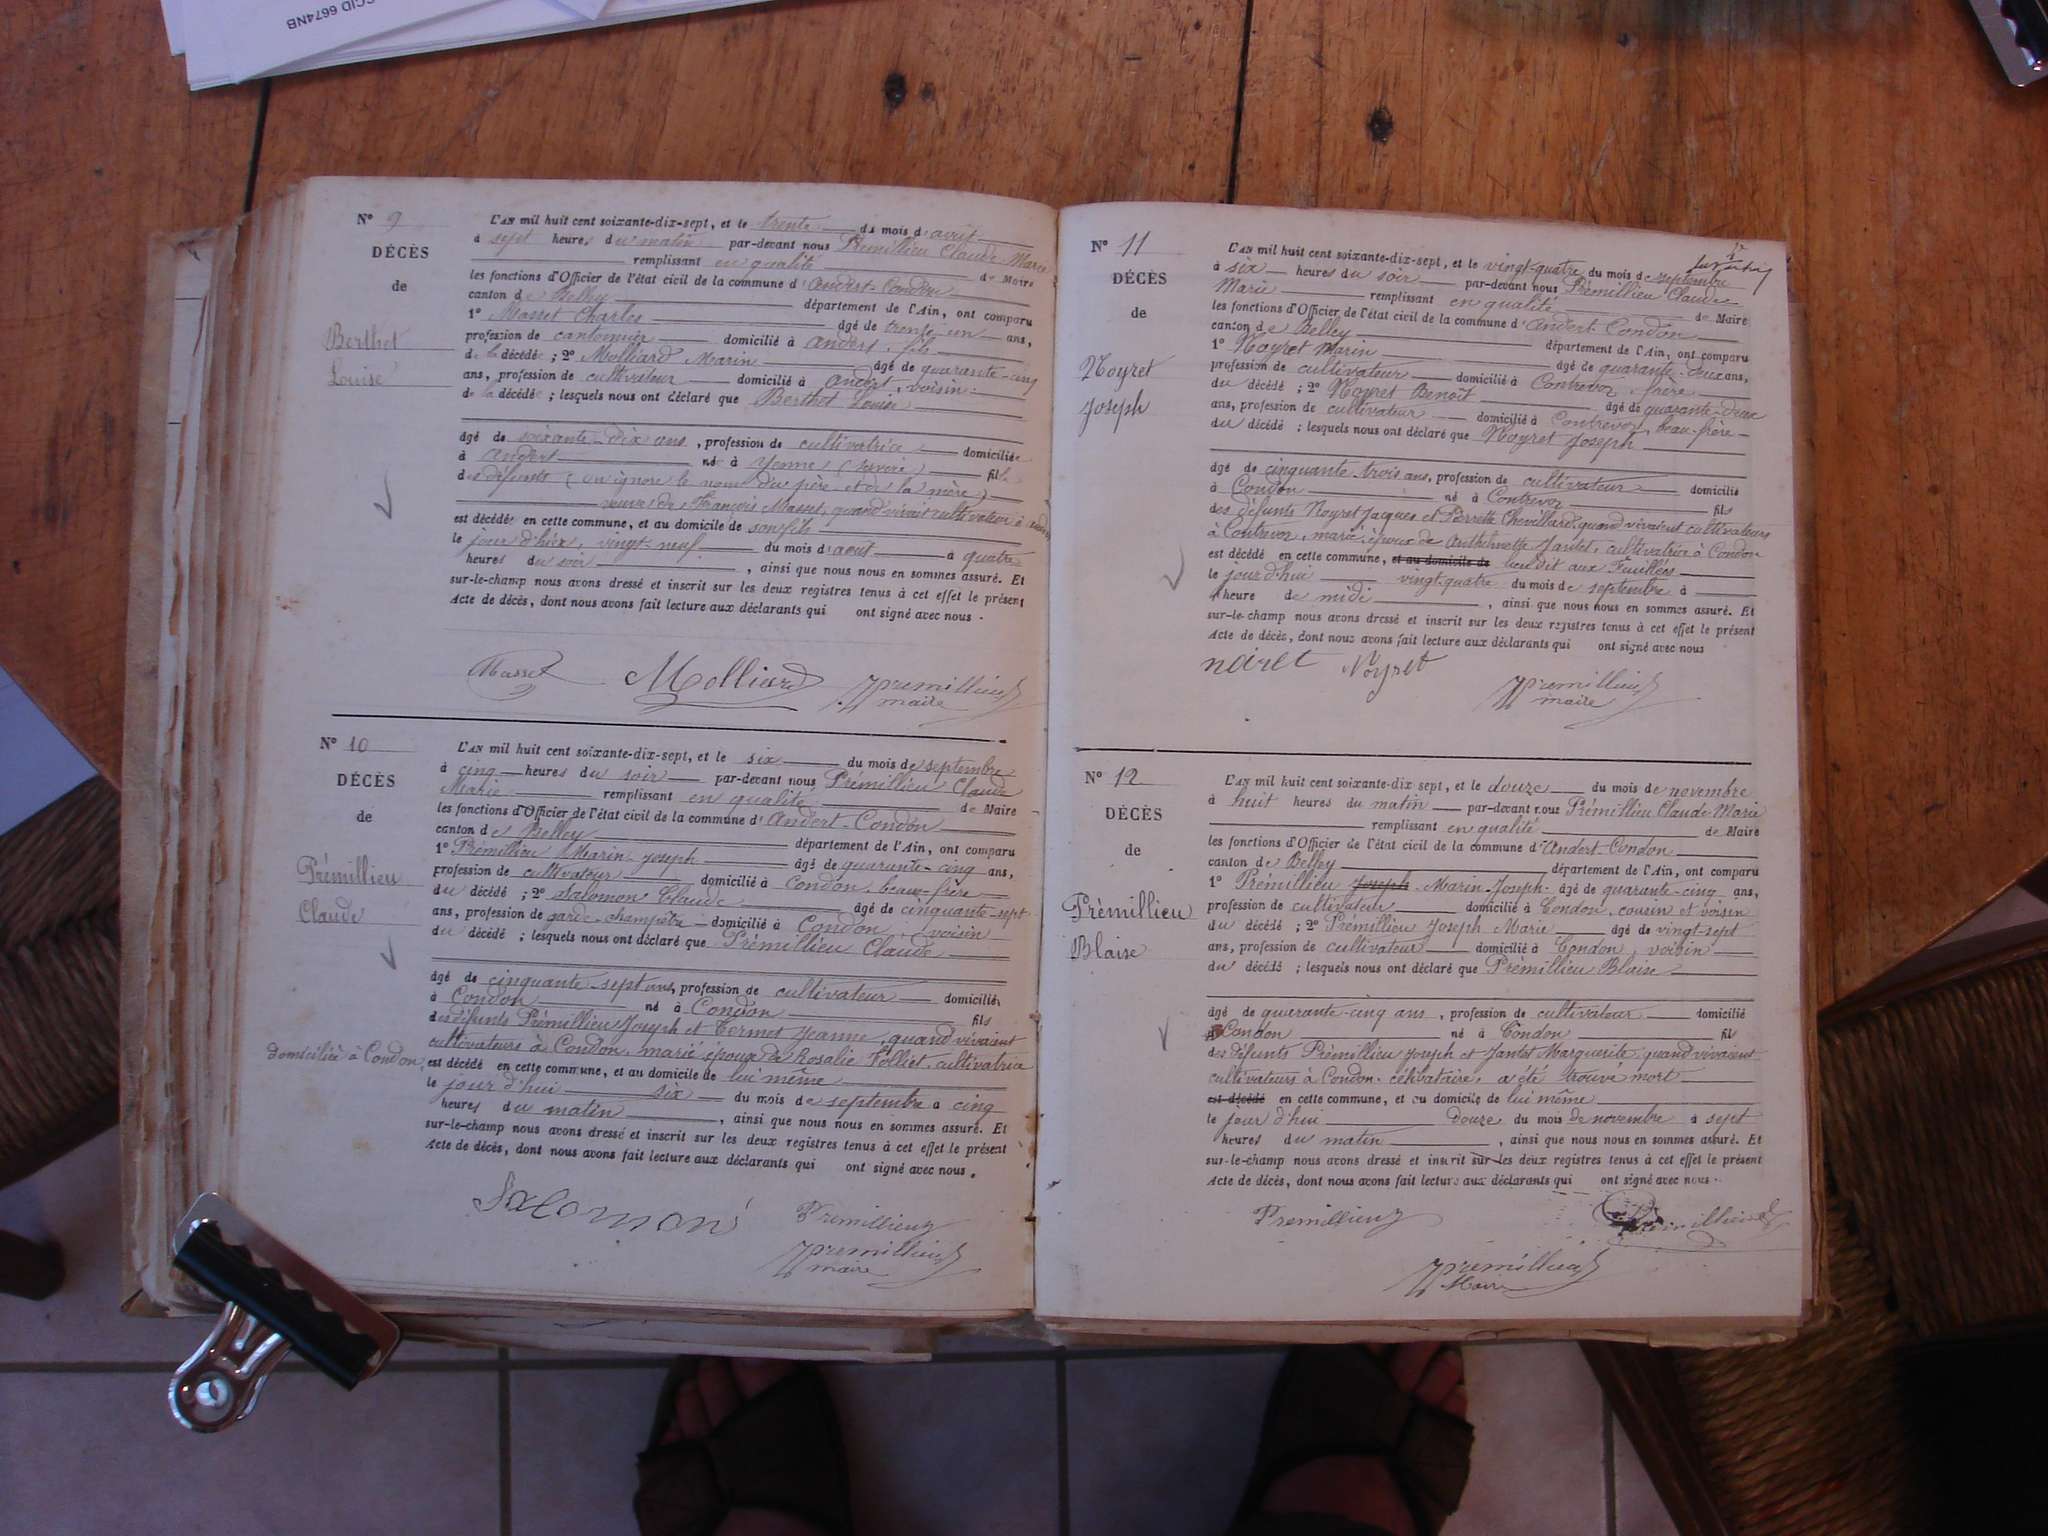 CCID 6674NB
N° 9
DÉCÈS
de
Berthet
Louise
L'AN mil huit cent soixante-dix-sept, et le trente du mois d'août
à sept heures du matin par-devant nous Prémillieu Claude-Marie
remplissant en qualité de Maire
les fonctions d'Officier de l'état civil de la commune d'Andert-Condon
canton de Belley département de l'Ain, ont comparu
1° Masset Charles âgé de trente-un ans,
profession de cantonnier domicilié à Andert, fils
de la décédée ; 2° Molliard Marin âgé de quarante-cinq
ans, profession de cultivateur domicilié à Andert, voisin
de la décédée ; lesquels nous ont déclaré que Berthet Louise
âgé de soixante-dix ans, profession de cultivatrice domiciliée
à Andert née à Yenne (Savoie) fille
des défunts (on ignore le nom du père et de la mère)
veuve de François Masset, quand vivait cultivateur à
est décédée en cette commune, et au domicile de son fils
le jour d'hier, vingt-neuf du mois d'août à quatre
heures du soir, ainsi que nous nous en sommes assuré. Et
sur-le-champ nous avons dressé et inscrit sur les deux registres tenus à cet effet le présent
Acte de décès, dont nous avons fait lecture aux déclarants qui ont signé avec nous.
Masset Molliard Premillieu
maire
N° 10
DÉCÈS
de
Prémillieu
Claude
L'AN mil huit cent soixante-dix-sept, et le six du mois de septembre
à cinq heures du soir par-devant nous Prémillieu Claude
Marie remplissant en qualité de Maire
les fonctions d'Officier de l'état civil de la commune d'Andert-Condon
canton de Belley département de l'Ain, ont comparu
1° Prémillieu Marin-Joseph âgé de quarante-cinq ans,
profession de cultivateur domicilié à Condon, beau-frère
du décédé ; 2° Salomon Claude âgé de cinquante-sept
ans, profession de garde-champêtre domicilié à Condon, voisin
du décédé ; lesquels nous ont déclaré que Prémillieu Claude
âgé de cinquante-sept ans, profession de cultivateur domicilié
à Condon né à Condon fils
des défunts Prémillieu Joseph et Cermet Jeanne, quand vivaient
cultivateurs à Condon, marié, époux de Rosalie Folliet, cultivatrice
domiciliée à Condon,
est décédé en cette commune, et au domicile de lui même
le jour d'hui six du mois de septembre à cinq
heures du matin, ainsi que nous nous en sommes assuré. Et
sur-le-champ nous avons dressé et inscrit sur les deux registres tenus à cet effet le présent
Acte de décès, dont nous avons fait lecture aux déclarants qui ont signé avec nous.
Salomon Premillieu
Premillieu
maire
N° 11
DÉCÈS
de
Noyret
Joseph
L'AN mil huit cent soixante-dix-sept, et le vingt-quatre du mois de septembre
à six heures du soir par-devant nous Prémillieu Claude
Marie remplissant en qualité de Maire
les fonctions d'Officier de l'état civil de la commune d'Andert-Condon
canton de Belley département de l'Ain, ont comparu
1° Noyret Marin âgé de quarante-deux ans,
profession de cultivateur domicilié à Contrevoz, frère
du décédé ; 2° Noyret Benoît âgé de quarante-deux
ans, profession de cultivateur domicilié à Contrevoz, beau-frère
du décédé ; lesquels nous ont déclaré que Noyret Joseph
âgé de cinquante-trois ans, profession de cultivateur domicilié
à Condon né à Contrevoz fils
des défunts Noyret Jacques et Perrette Chevillard, quand vivaient cultivateurs
à Contrevoz, marié, époux de Anthelmette Jantet, cultivatrice à Condon
est décédé en cette commune, et au domicile de lieu dit aux Feuillées
le jour d'hui vingt-quatre du mois de septembre à
heure de midi, ainsi que nous nous en sommes assuré. Et
sur-le-champ nous avons dressé et inscrit sur les deux registres tenus à cet effet le présent
Acte de décès, dont nous avons fait lecture aux déclarants qui ont signé avec nous
noiret Noyret
Premillieu
maire
N° 12
DÉCÈS
de
Prémillieu
Blaise
L'AN mil huit cent soixante-dix sept, et le douze du mois de novembre
à huit heures du matin par-devant nous Prémillieu Claude-Marie
remplissant en qualité de Maire
les fonctions d'Officier de l'état civil de la commune d'Andert-Condon
canton de Belley département de l'Ain, ont comparu
1° Prémillieu Joseph Marin-Joseph âgé de quarante-cinq ans,
profession de cultivateur domicilié à Condon, cousin et voisin
du décédé ; 2° Prémillieu Joseph Marie âgé de vingt-sept
ans, profession de cultivateur domicilié à Condon, voisin
du décédé ; lesquels nous ont déclaré que Prémillieu Blaise
âgé de quarante-cinq ans, profession de cultivateur domicilié
à Condon né à Condon fils
des défunts Prémillieu Joseph et Jantet Marguerite, quand vivaient
cultivateurs à Condon, célibataire, a été trouvé mort
est décédé en cette commune, et au domicile de lui même
le jour d'hui douze du mois de novembre à sept
heures du matin, ainsi que nous nous en sommes assuré. Et
sur-le-champ nous avons dressé et inscrit sur les deux registres tenus à cet effet le présent
Acte de décès, dont nous avons fait lecture aux déclarants qui ont signé avec nous.
Premillieu Premillieu
Premillieu
Maire